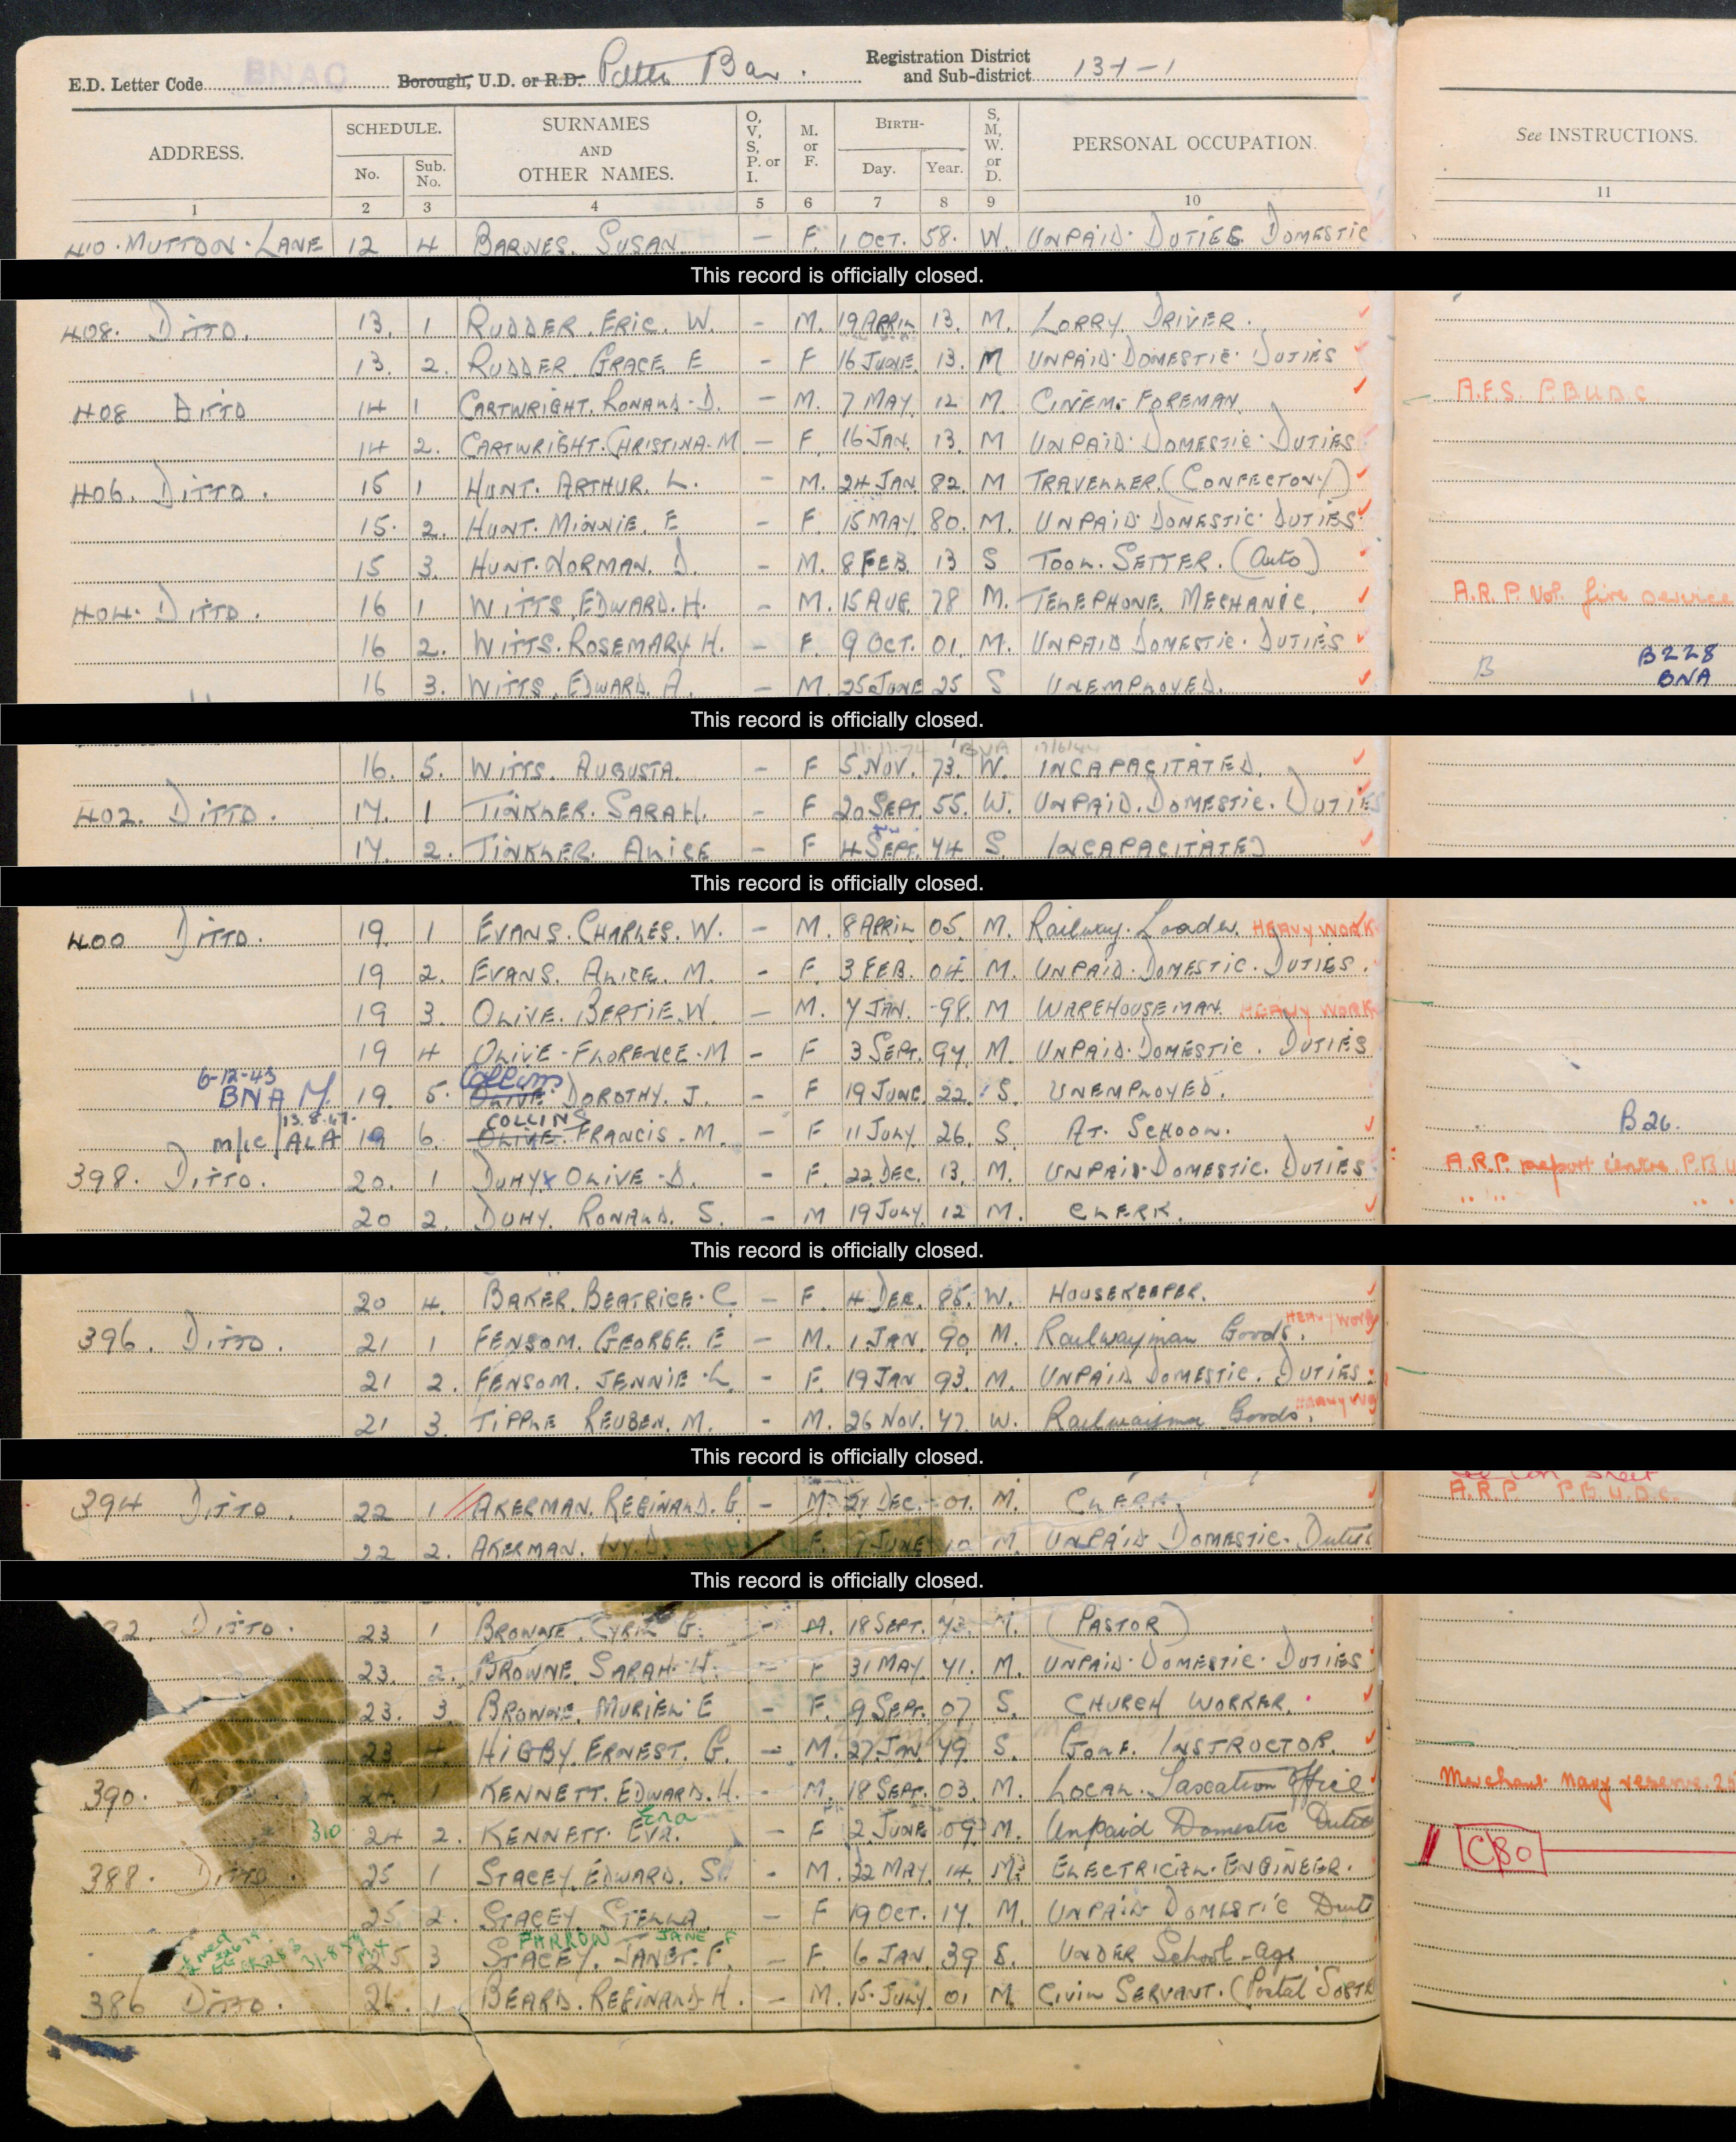 E.D. Letter Code BNAC Borough, U.D. or R.D. Potters Bar. Registration District and Sub-district 131-1
ADDRESS. SCHEDULE. SURNAMES AND OTHER NAMES. O, V, S, P. or I. M. or F. BIRTH- S, M, W. or D. PERSONAL OCCUPATION. See INSTRUCTIONS.
No. Sub. No. Day. Year.
1 2 3 4 5 6 7 8 9 10 11
410. MUTTON. LANE 12 4 BARNES. SUSAN — F. 1 OCT. 58. W. UNPAID. DUTIES DOMESTIC
This record is officially closed.
408. DITTO. 13. 1 RUDDER. ERIC. W. - M. 19 APRIL 13. M. LORRY DRIVER.
13. 2. RUDDER. GRACE E - F 16 JUNE. 13. M UNPAID. DOMESTIC. DUTIES
408 DITTO 14 1 CARTWRIGHT. RONALD. D. - M. 7 MAY 12 M. CINEMA FOREMAN. A.F.S. P.B.U.D.C
14 2. CARTWRIGHT. CHRISTINA. M - F. 16 JAN. 13. M UNPAID. DOMESTIC. DUTIES
406. DITTO. 15 1 HUNT. ARTHUR. L. - M. 24 JAN. 82. M TRAVELLER. (CONFECTONY)
15. 2. HUNT. MINNIE. E - F. 15 MAY. 80. M. UNPAID. DOMESTIC. DUTIES.
15 3. HUNT. NORMAN. D. - M. 8 FEB. 13 S TOOL. SETTER. (Auto)
404. DITTO. 16 1 WITTS. EDWARD. H. - M. 15 AUG. 78 M. TELEPHONE. MECHANIC. A.R.P. Vol. fire service
16 2. WITTS. ROSEMARY H. - F. 9 OCT. 01. M. UNPAID DOMESTIC. DUTIES
16 3. WITTS. EDWARD. A. - M. 25 JUNE 25 S UNEMPLOYED. B B228 BNA
This record is officially closed.
16. 5. WITTS. AUGUSTA. - F 5. NOV. 73. W. INCAPACITATED.
402. DITTO. 17. 1 TINKLER. SARAH. - F 20 SEPT. 55. W. UNPAID. DOMESTIC. DUTIES
17. 2. TINKLER. ALICE - F 4 SEPT. 74 S. INCAPACITATED
This record is officially closed.
400 DITTO. 19. 1 EVANS. CHARLES. W. - M. 8 APRIL 05. M. Railway. Loader. HEAVY WORK
19 2. EVANS. ALICE. M. - F. 3 FEB. 04. M. UNPAID. DOMESTIC. DUTIES.
19 3. OLIVE. BERTIE. W. - M. 7 JAN. -98. M WAREHOUSEMAN. HEAVY WORK
19 4 OLIVE. FLORENCE. M - F 3 SEPT. 97. M. UNPAID. DOMESTIC. DUTIES
6-12-43 BNA M. 19. 5. OLIVE Collins DOROTHY. J. - F 19 JUNE. 22. S. UNEMPLOYED.
m/c ALA 13.8.47. 19 6. OLIVE COLLINS FRANCIS. M. - F 11 JULY 26. S AT. SCHOOL. B26.
398. DITTO. 20. 1 DUHY OLIVE. D. - F. 22 DEC. 13. M. UNPAID. DOMESTIC. DUTIES. A.R.P. report centre. P.B.U
20 2. DUHY. RONALD. S. - M 19 JULY 12 M. CLERK. " " " "
This record is officially closed.
20 4. BAKER. BEATRICE. C - F. 4 DEC. 85. W. HOUSEKEEPER.
396. DITTO. 21 1 FENSOM. GEORGE. E - M. 1 JAN 90. M. Railwayman Goods. HEAVY WORK
21 2. FENSOM. JENNIE. L. - F. 19 JAN 93. M. UNPAID DOMESTIC. DUTIES.
21 3. TIPPLE REUBEN. M. - M. 26 NOV. 47. W. Railwayman Goods.
This record is officially closed.
394 DITTO. 22 1 AKERMAN. REGINALD. G - M. 27 DEC. 01. M. CLERK. A.R.P. P.B.U.D.C.
22 2. AKERMAN. IVY. D. F. 7 JUNE 10 M. UNPAID DOMESTIC. Duties
This record is officially closed.
92. DITTO. 23 1 BROWNE. CYRIL G. - M. 18 SEPT. 73. M. (PASTOR)
23. 2. BROWNE. SARAH. H. - F 31 MAY 71. M. UNPAID. DOMESTIC. DUTIES
23. 3 BROWNE. MURIEL. E - F. 9 SEPT. 07 S. CHURCH WORKER.
23 4. HIGBY. ERNEST. G. - M. 27 JAN 79. S. GOLF. INSTRUCTOR.
390. 24. 1 KENNETT. EDWARD. H. - M. 18 SEPT. 03. M. LOCAL. Taxation Office Merchant Navy reserve. 25
310 24 2. KENNETT. EVA. Ena - F 2 JUNE 09 M. Unpaid Domestic Duties
388. DITTO. 25 1 STACEY. EDWARD. S - M. 22 MAY. 14 M. ELECTRICAL. ENGINEER. C80
25 2. STACEY. STELLA. - F 19 OCT. 17 M. UNPAID DOMESTIC Duti
25 3 STACEY. JANET. F. FARROW JANE F - F. 6 JAN 39 S. UNDER School-age
386 DITTO. 26. 1 BEARD. REGINALD. H. - M. 15. JULY. 01 M. CIVIL SERVANT. (Postal SORTE